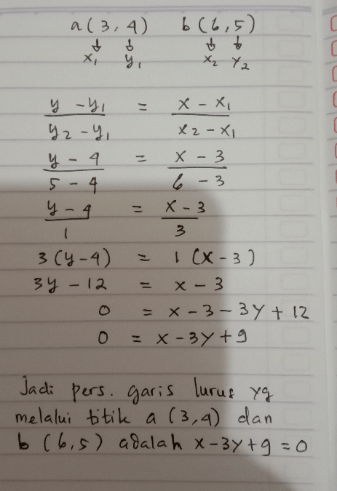 a (3, 4) b (6, 5)
↓ ↓ ↓ ↓
x₁ y₁ x₂ y₂
y - y₁ / y₂ - y₁ = x - x₁ / x₂ - x₁
y - 4 / 5 - 4 = x - 3 / 6 - 3
y - 4 / 1 = x - 3 / 3
3 (y - 4) = 1 (x - 3)
3y - 12 = x - 3
0 = x - 3 - 3y + 12
0 = x - 3y + 9
Jadi pers. garis lurus yg
melalui titik a (3,4) dan
b (6,5) adalah x - 3y + 9 = 0